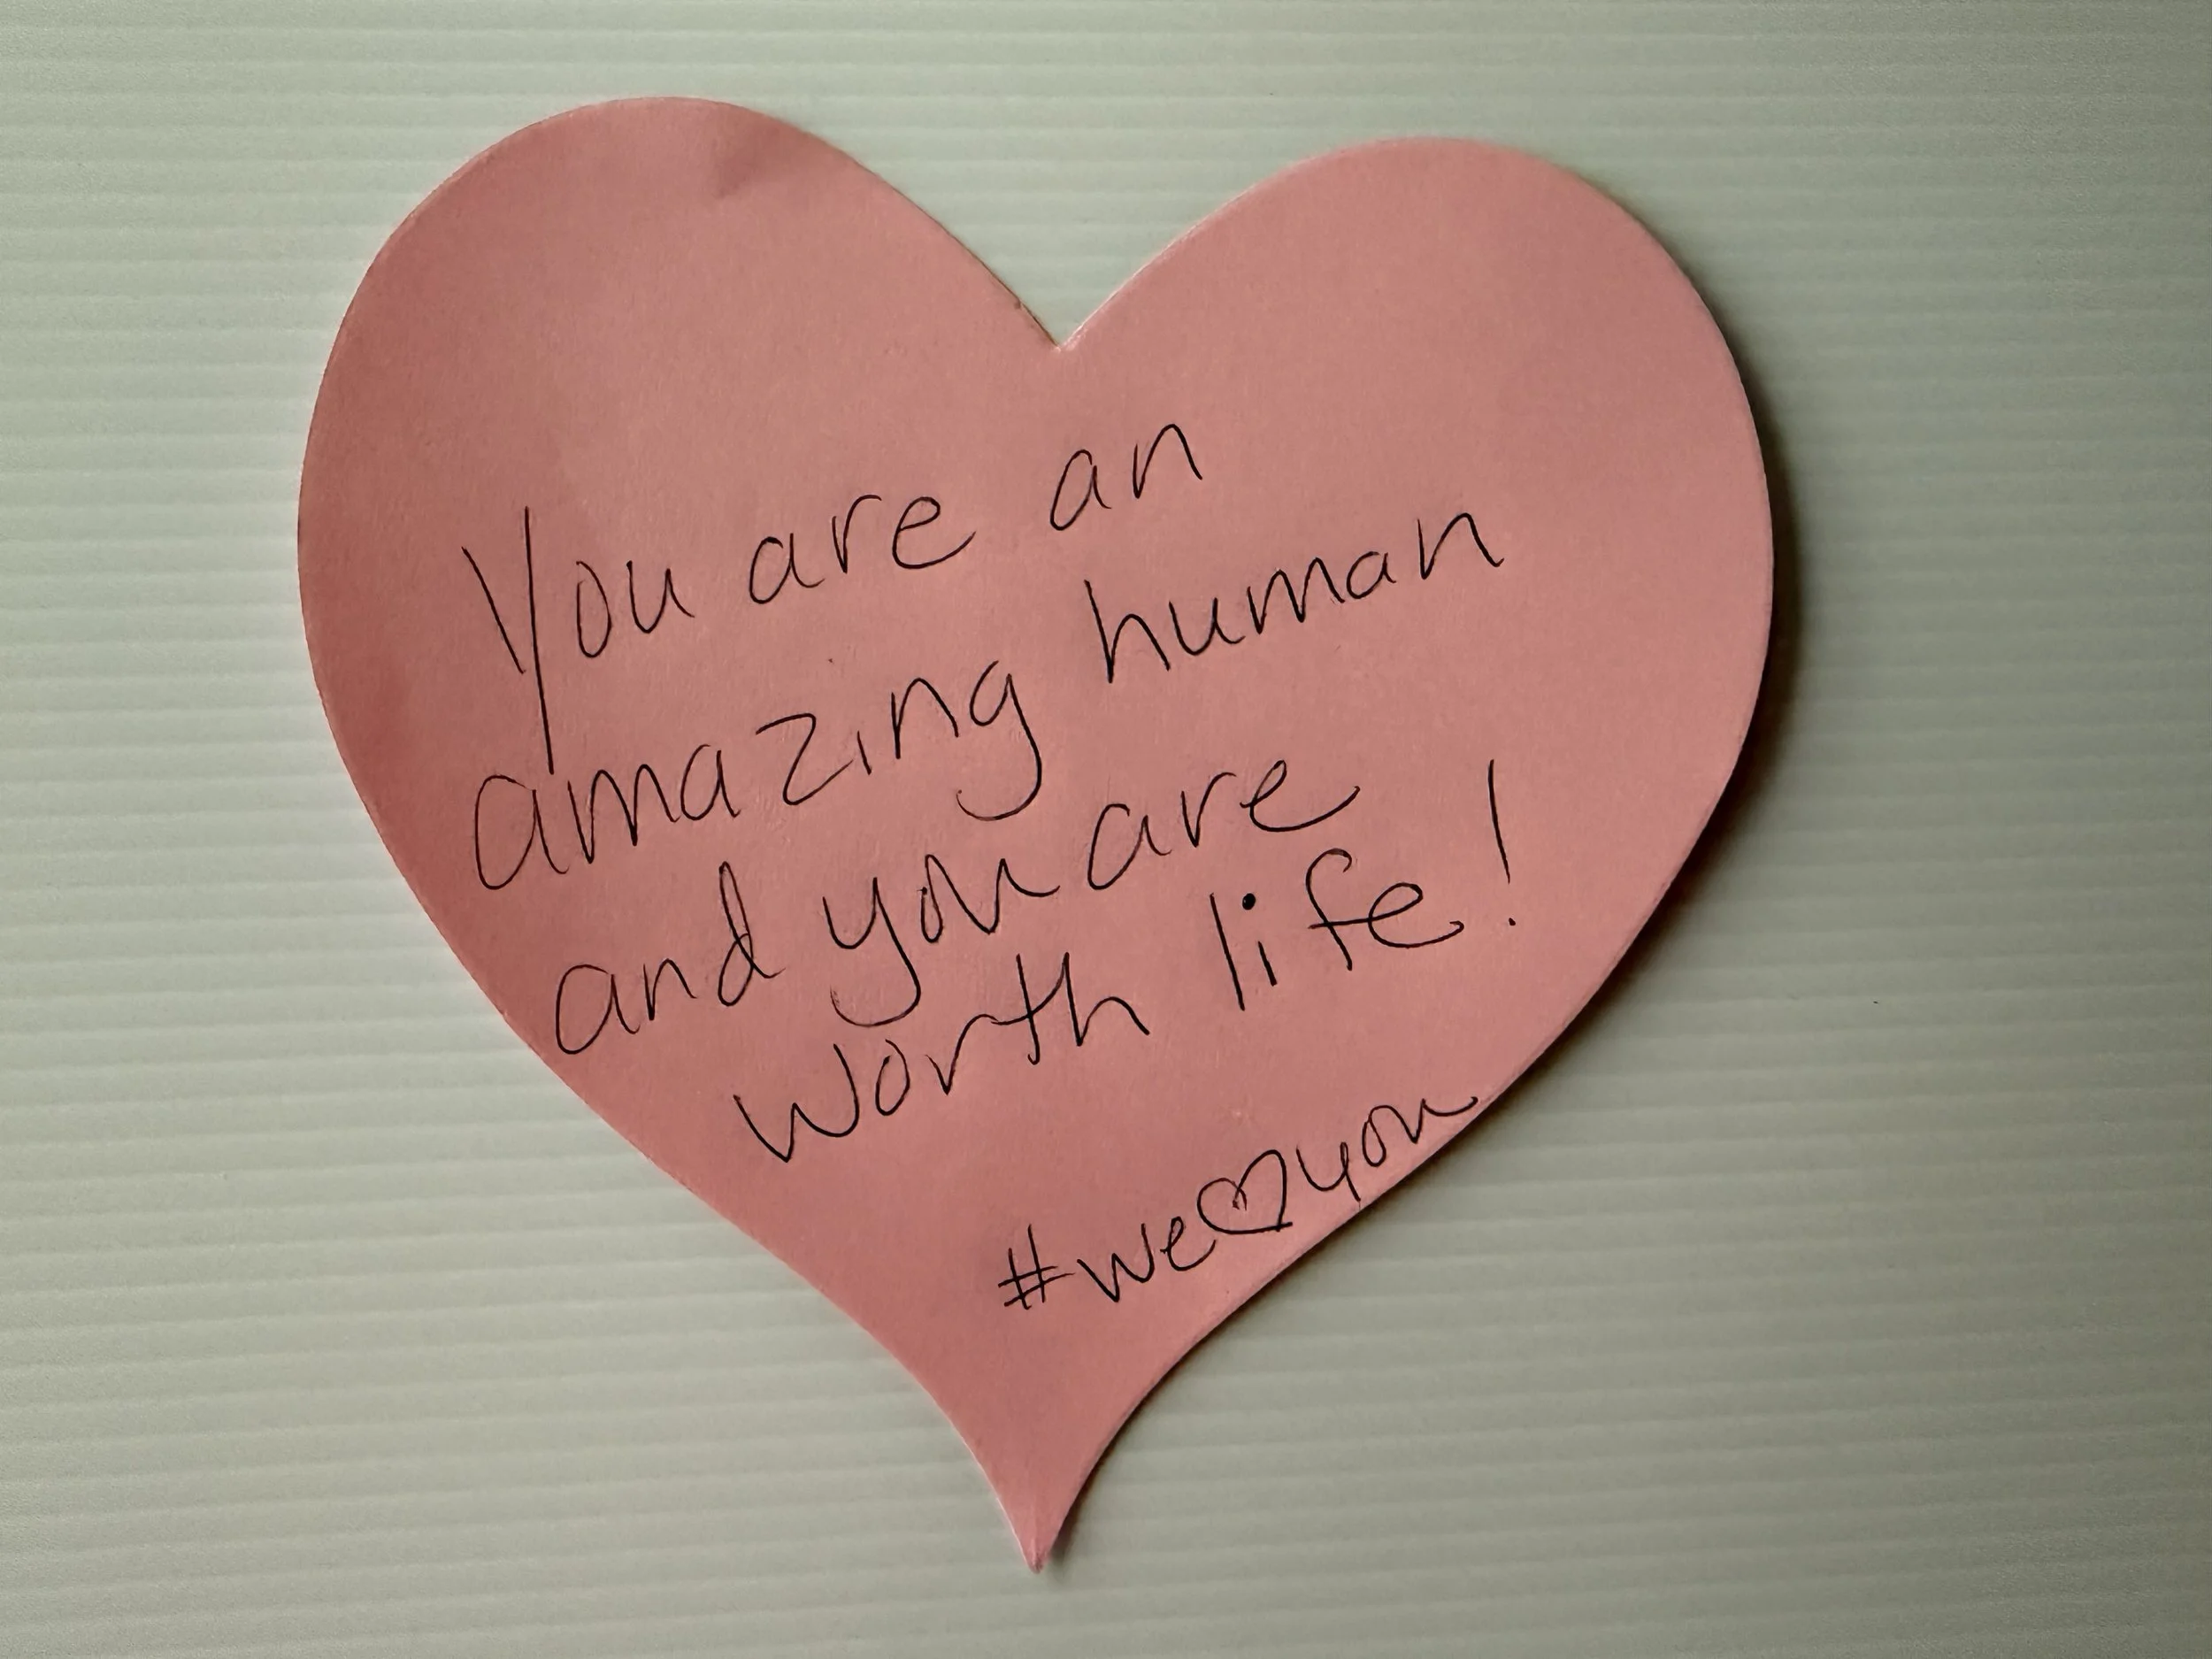 You are an
amazing human
and you are
worth life!
#we♡you